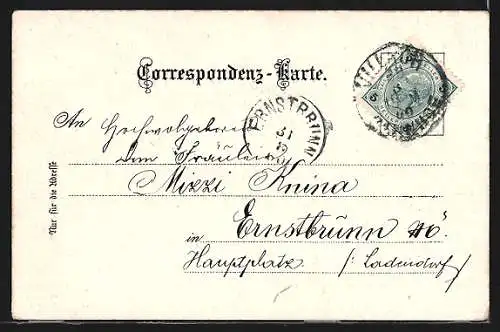 Correspondenz-Karte.
5 5
ERNSTBRUNN
31
An Hochwolgeboren
dem Fräulein
Mizzi Knina
in Ernstbrunn
Hauptplatz /: Ladendorf /
Nur für die Adresse